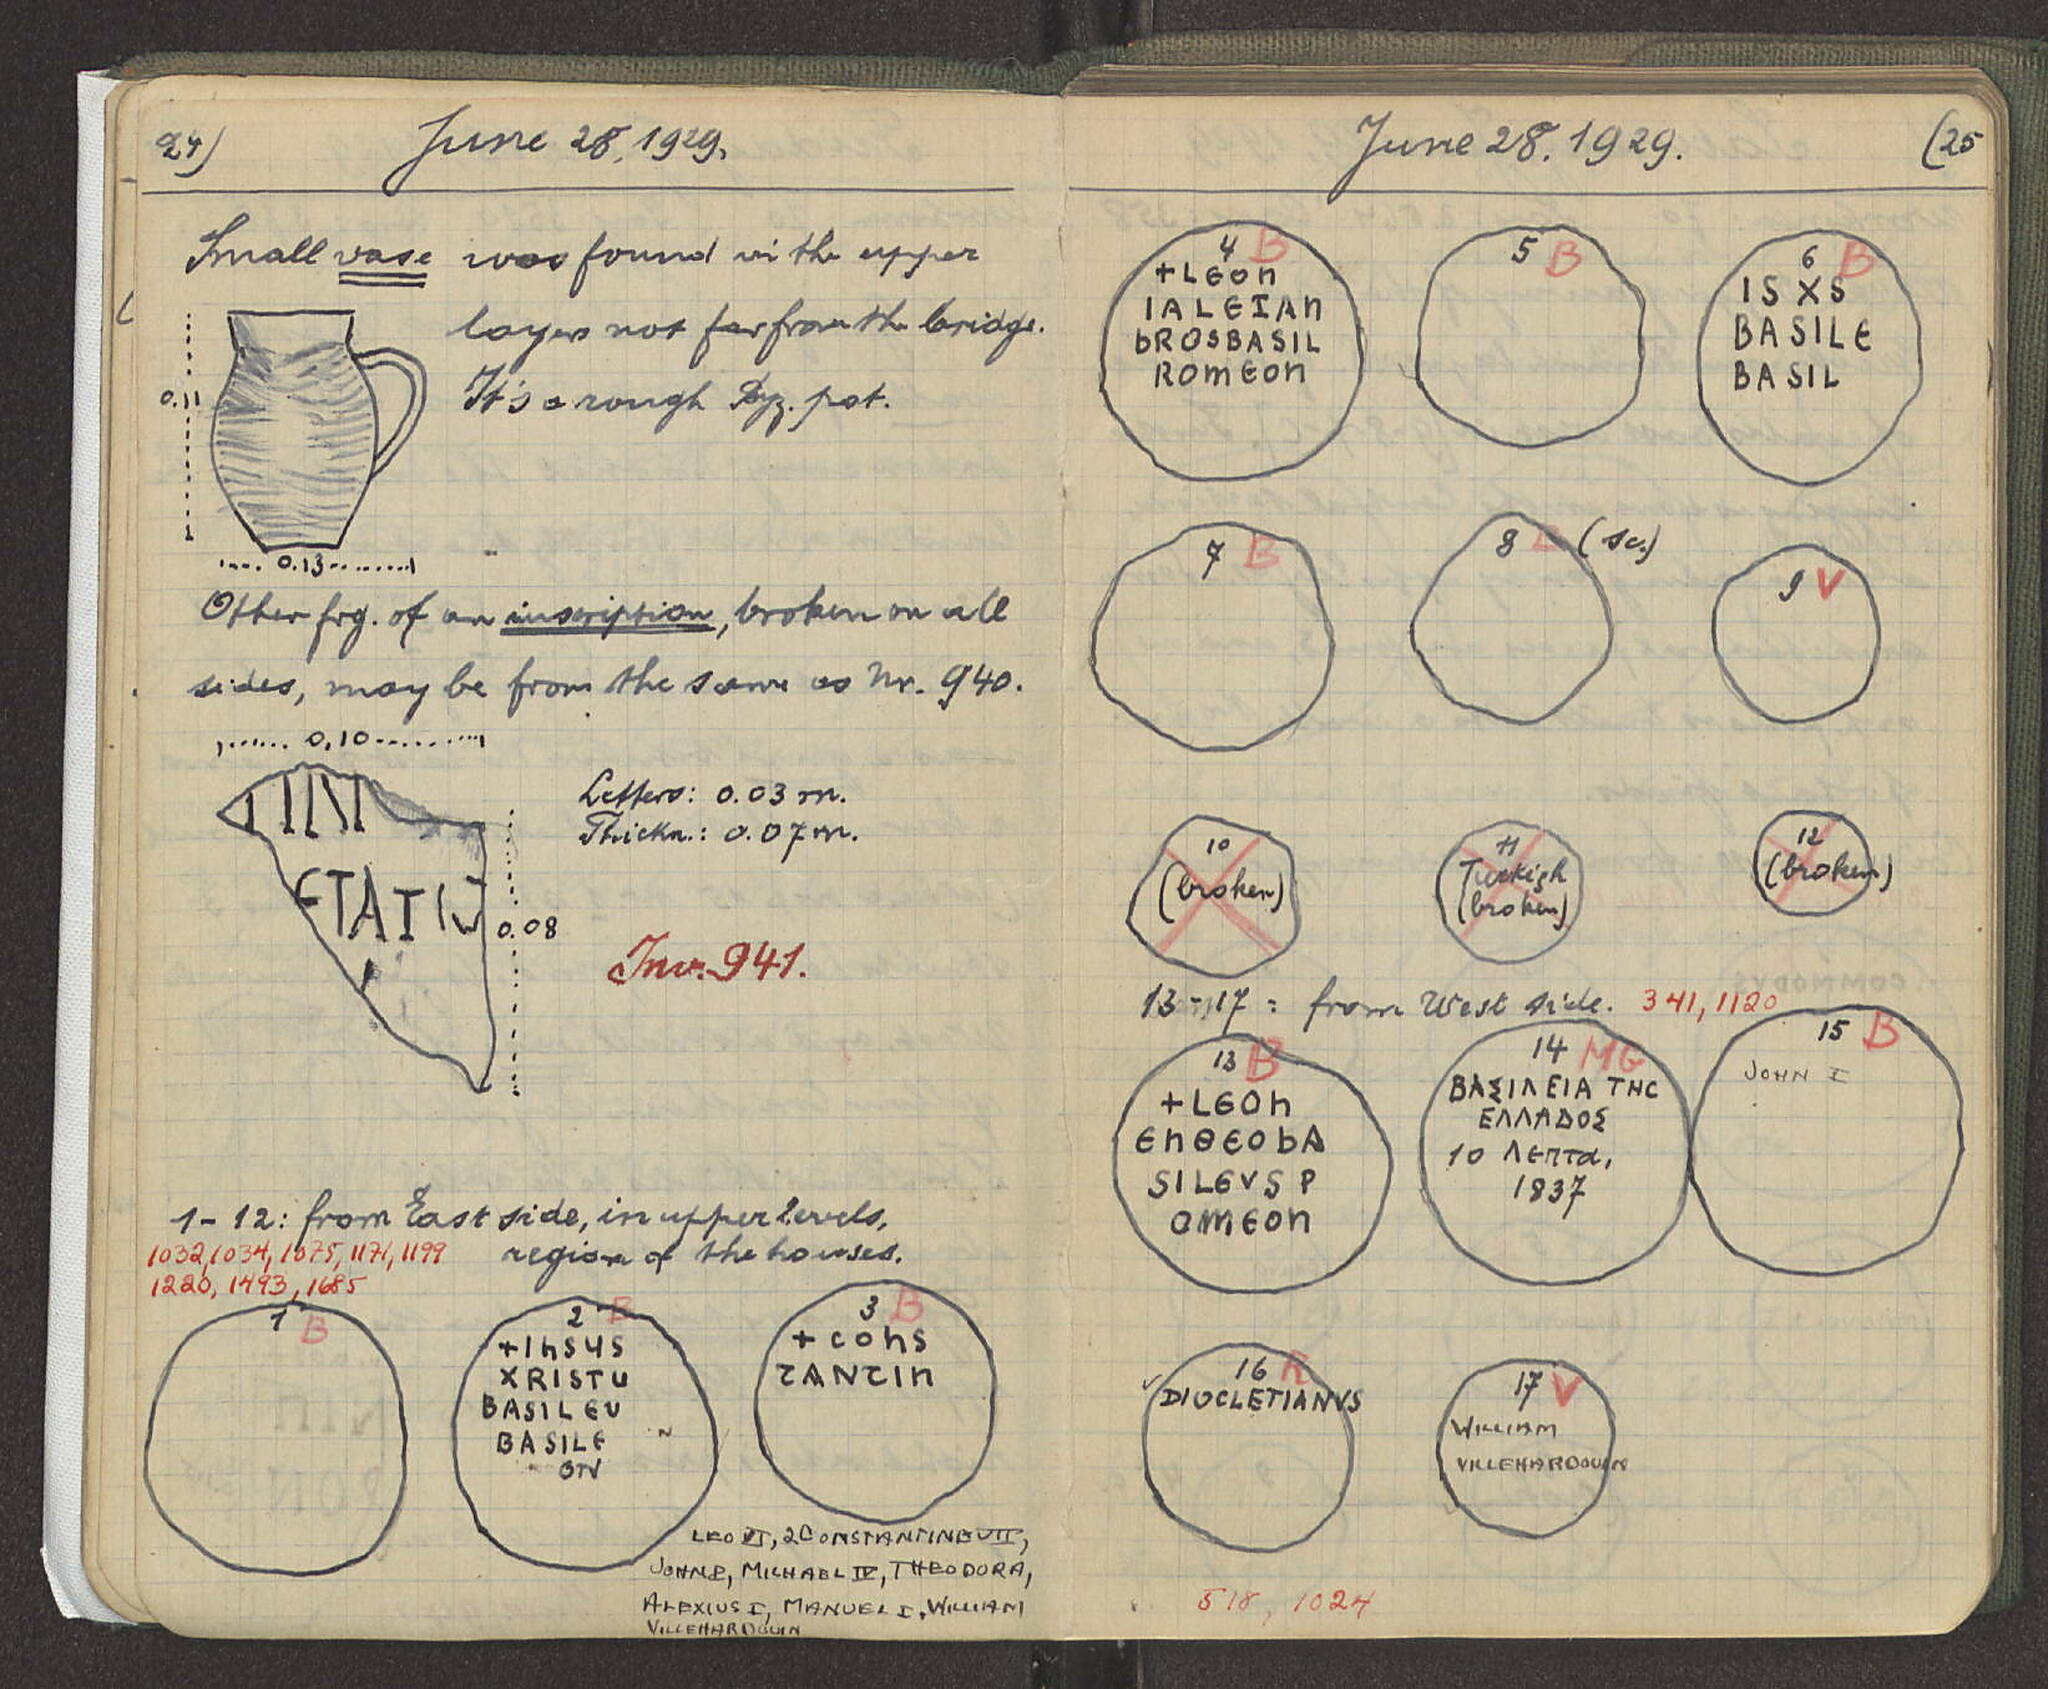 24)
June 28, 1929.
Small vase was found in the upper
layers not far from the bridge.
It's a rough Byz. pot.
0.11
0.13
Other frg. of an inscription, broken on all
sides, may be from the same as Nr. 940.
0,10
Letters: 0.03 m.
Thickn.: 0.07 m.
ETATI
0.08
Inv. 941.
1-12: from East side, in upper levels,
region of the houses.
1032, 1034, 1075, 1171, 1199
1220, 1493, 1685
1 B
2 B
+IhSUS
XRISTU
BASILEU
BASILE
3 B
+COhS
TANTIn
LEO VI, 2 CONSTANTINE VII,
JOHN I, MICHAEL IV, THEODORA,
ALEXIUS I, MANUEL I, WILLIAM
VILLEHARDOUIN
June 28. 1929.
(25
4 B
+LEOn
IALEIAn
bROSBASIL
ROMEOn
5 B
6 B
IS XS
BASILE
BASIL
7 B
8
(sc.)
9 V
10
(broken)
11
Turkish
(broken)
12
(broken)
13-17: from West side. 341, 1120
13 B
+LEOn
EnΘEObA
SILEVS P
OMEOn
14 MG
ΒΑΣΙΛΕΙΑ ΤΗC
ΕΛΛΑΔΟΣ
10 ΛΕΠΤα,
1837
15 B
JOHN I
16 R
DIOCLETIANVS
17 V
WILLIAM
VILLEHARDOUIN
518, 1024